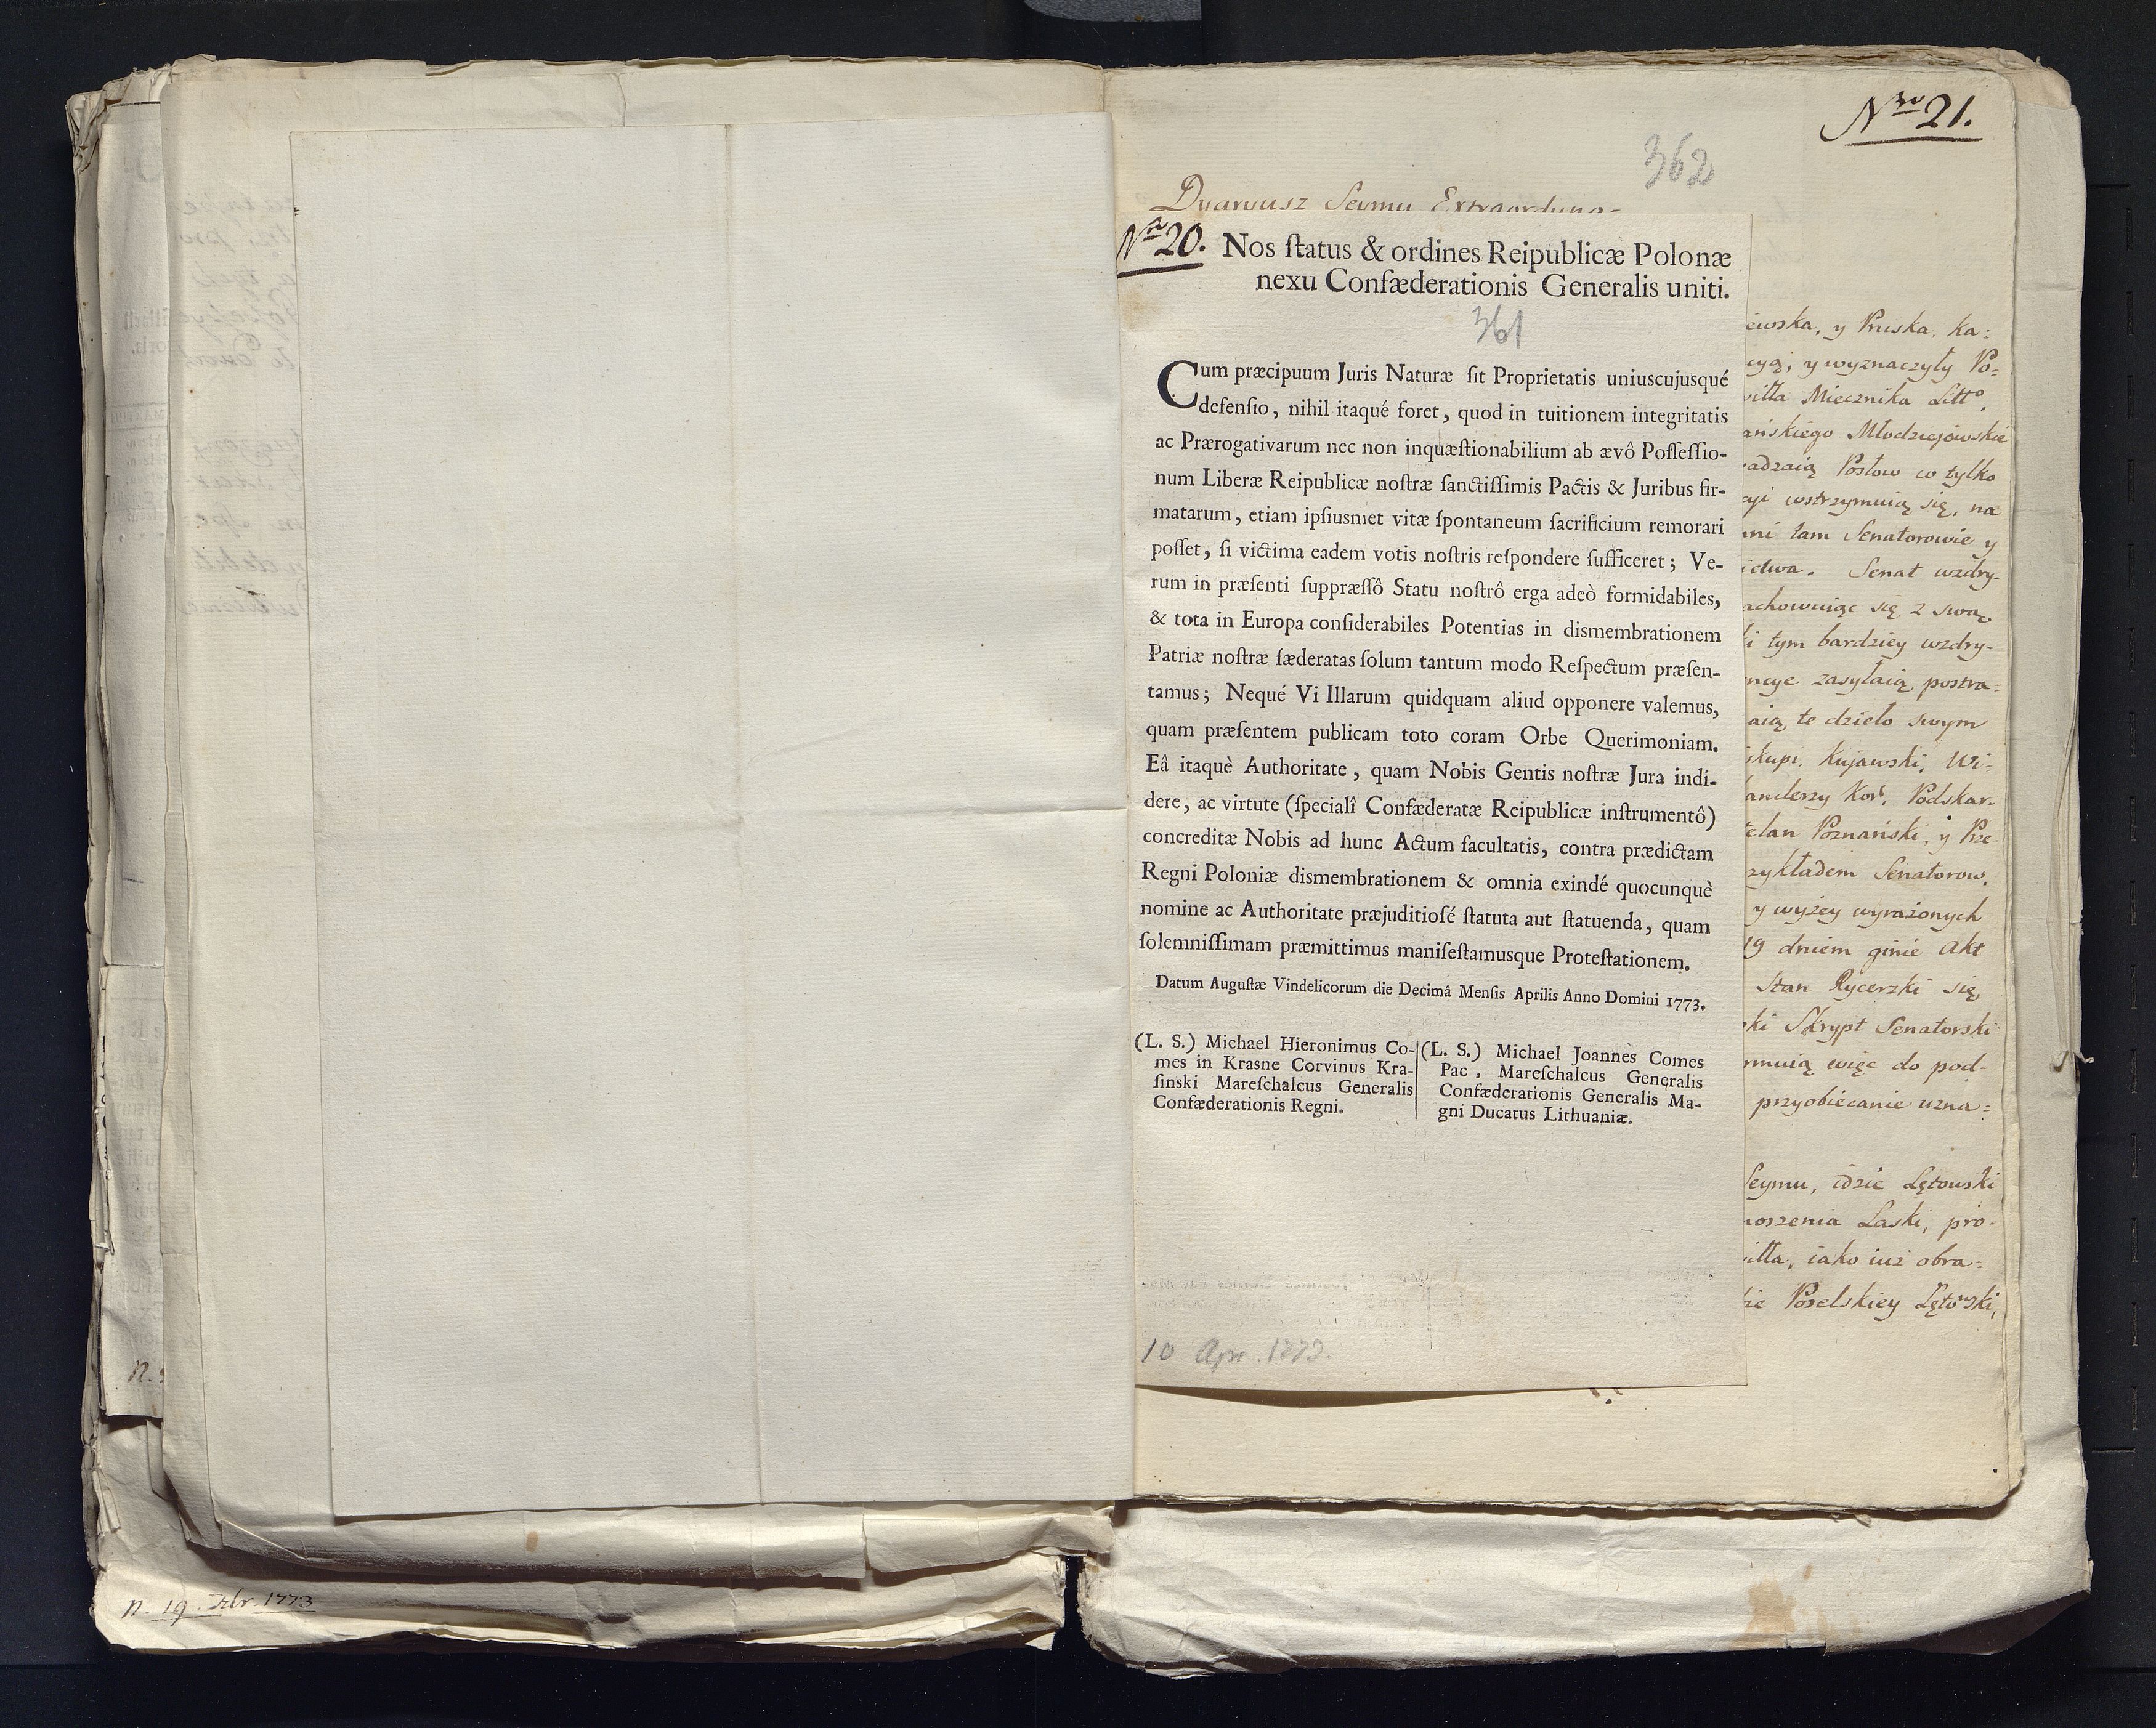 Nro 21.
362
Dyaryusz Seymu Extraordyna-
Nro 20. Nos ſtatus & ordines Reipublicæ Polonæ
nexu Confæderationis Generalis uniti.
361
Cum præcipuum Juris Naturæ ſit Proprietatis uniuscujusqué
defenſio, nihil itaqué foret, quod in tuitionem integritatis
ac Prærogativarum nec non inquæſtionabilium ab ævô Poſſeſſio-
num Liberæ Reipublicæ noſtræ ſanctiſſimis Pactis & Juribus fir-
matarum, etiam ipſiusmet vitæ ſpontaneum ſacrificium remorari
poſſet, ſi victima eadem votis noſtris reſpondere ſufficeret; Ve-
rum in præſenti ſuppræſſô Statu noſtrô erga adeò formidabiles,
& tota in Europa conſiderabiles Potentias in dismembrationem
Patriæ noſtræ fæderatas ſolum tantum modo Reſpectum præſen-
tamus; Nequé Vi Illarum quidquam aliud opponere valemus,
quam præſentem publicam toto coram Orbe Querimoniam.
Eâ itaquè Authoritate, quam Nobis Gentis noſtræ Jura indi-
dere, ac virtute (ſpecialî Confæderatæ Reipublicæ inſtrumentô)
concreditæ Nobis ad hunc Actum facultatis, contra prædictam
Regni Poloniæ dismembrationem & omnia exindé quocunquè
nomine ac Authoritate præjuditioſé ſtatuta aut ſtatuenda, quam
ſolemniſſimam præmittimus manifeſtamusque Proteſtationem.
Datum Auguſtæ Vindelicorum die Decimâ Menſis Aprilis Anno Domini 1773.
(L. S.) Michael Hieronimus Co-
mes in Krasne Corvinus Kra-
ſinski Mareſchalcus Generalis
Confæderationis Regni.
(L. S.) Michael Joannes Comes
Pac, Mareſchalcus Generalis
Confæderationis Generalis Ma-
gni Ducatus Lithuaniæ.
10 Apr. 1773.
y Pruska, ka:
y wyznaczyły Po-
Miecznika Litto.
Młodziejowskie
Posłow co tylko
wstrzymuią się, na
tam Senatorowie y
Senat wzdry-
się z swą
tym bardziey wzdry-
zasyłaią, postra-
te dzieło swym
Kujawski, Wi-
Kor. Podskar-
Poznański, y Prze-
Senatorow,
y wyżey wyrażonych
19 dniem ginie Akt
Stan Rycerski się
Skrypt Senatorski
więc do pod-
przyobiecanie uzna=
Seymu, idzie Lętowski
Laski, pro-
iako iuż obra=
Poselskiey Lętowski,
N. 19. Febr. 1773